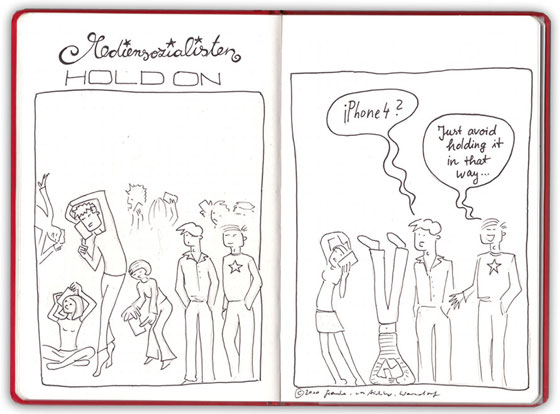 Mediensozialisten
HOLD ON
iPhone4?
Just avoid
holding it
in that
way...
©2010